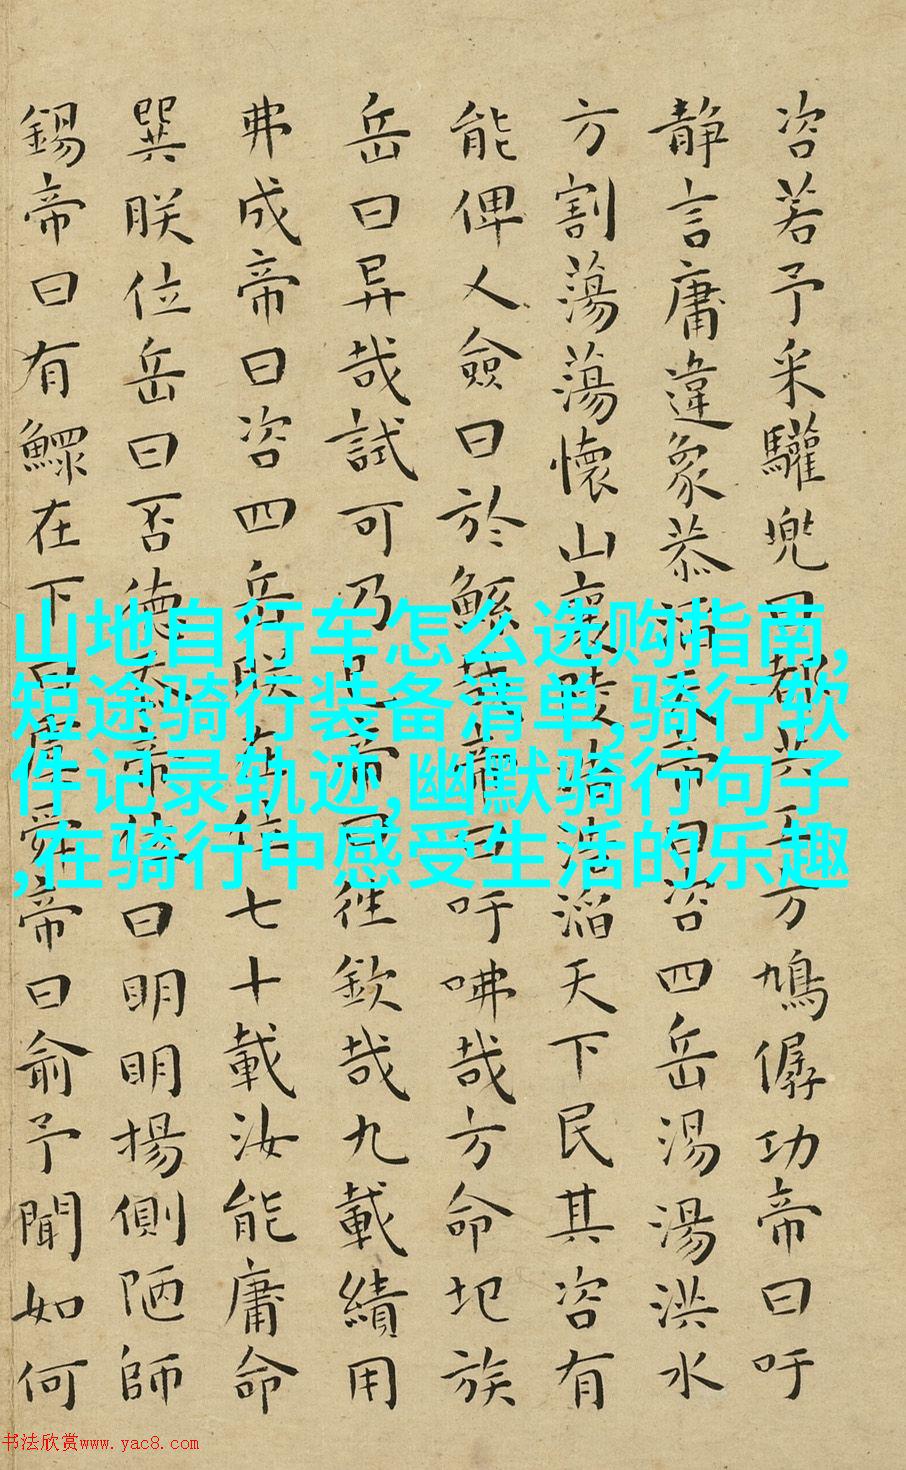 咨若予采驩兜曰都共工方鳩僝功帝曰吁
静言庸違象恭滔天帝曰咨四岳湯湯洪水
方割蕩蕩懷山襄陵浩浩滔天下民其咨有
能俾乂僉曰於鯀哉帝曰吁咈哉方命圮族
岳曰异哉試可乃已帝曰往欽哉九載績用
弗成帝曰咨四岳朕在位七十載汝能庸命
巽朕位岳曰否德忝帝位曰明明揚側陋師
錫帝曰有鰥在下曰虞舜帝曰俞予聞如何
山地自行车怎么选购指南,
短途骑行装备清单,骑行软
件记录轨迹,幽默骑行句子
,在骑行中感受生活的乐趣
书法欣赏www.yac8.com